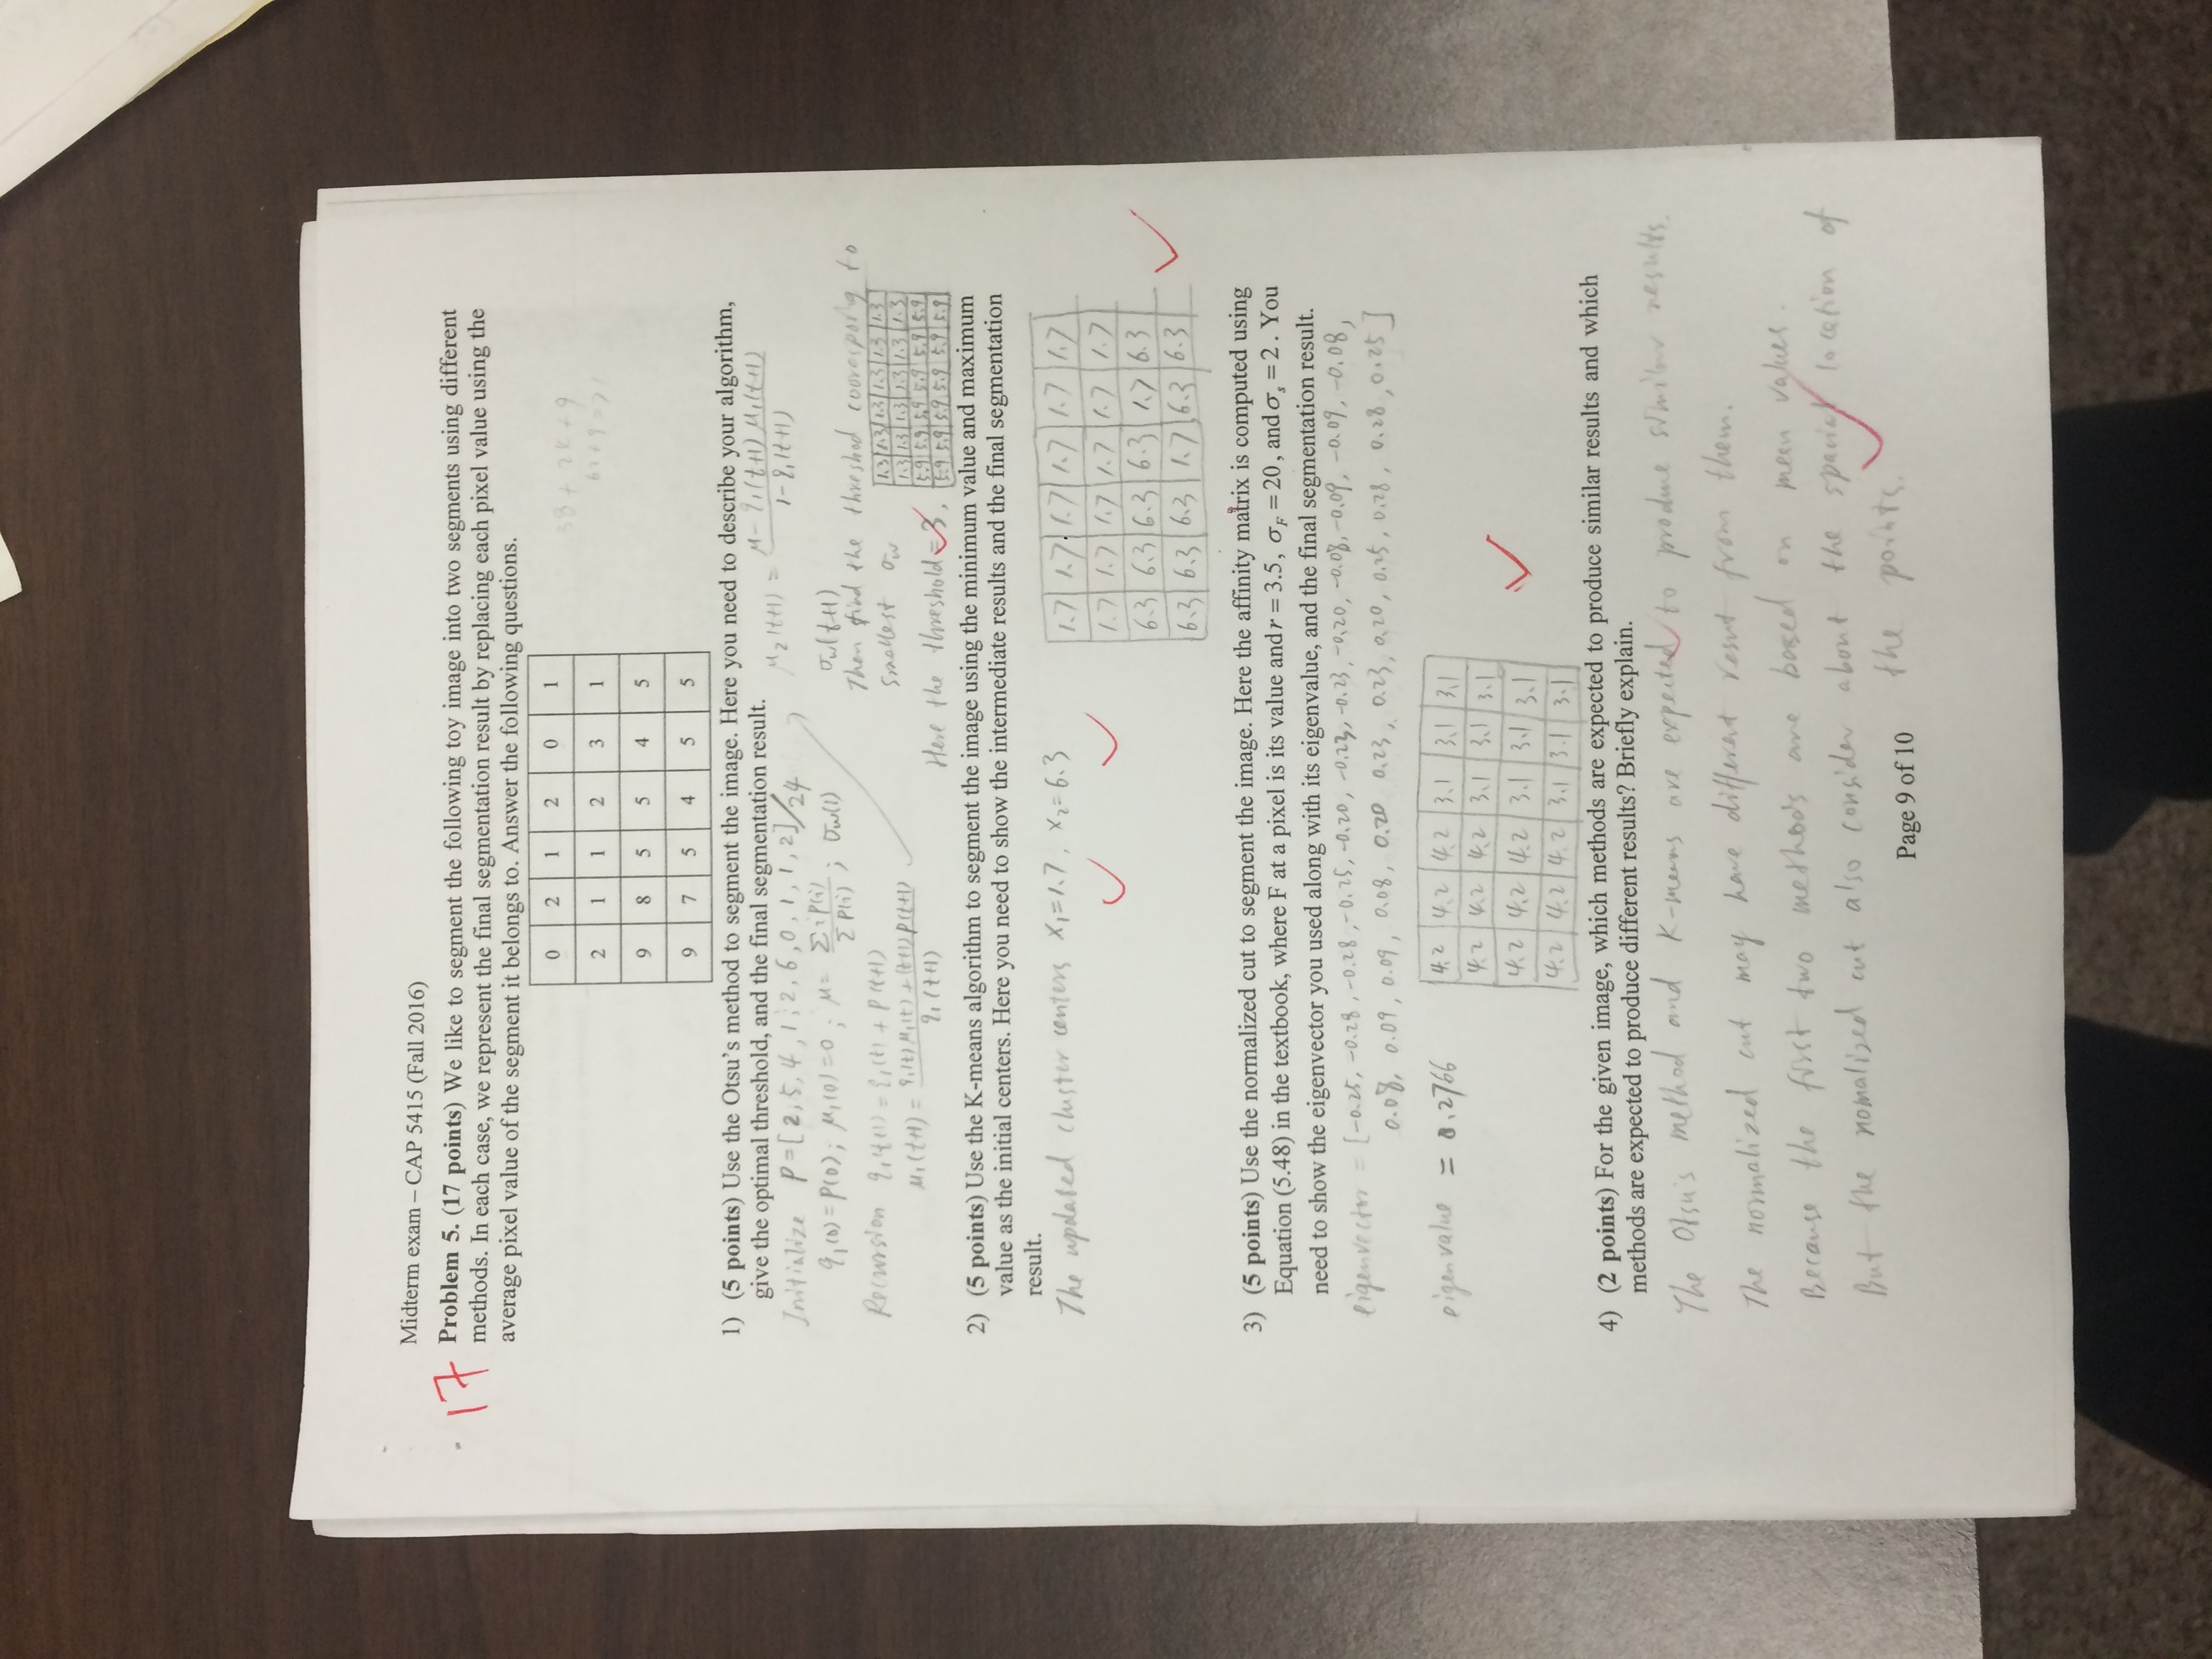 Midterm exam – CAP 5415 (Fall 2016)
17
Problem 5. (17 points) We like to segment the following toy image into two segments using different
methods. In each case, we represent the final segmentation result by replacing each pixel value using the
average pixel value of the segment it belongs to. Answer the following questions.
0 2 1 2 0 1
2 1 1 2 3 1
9 8 5 5 4 5
9 7 5 4 5 5
1) (5 points) Use the Otsu's method to segment the image. Here you need to describe your algorithm,
give the optimal threshold, and the final segmentation result.
Initialize P=[2,5,4,1,2,6,0,1,1,2]/24
q₁(0)=P(0); μ₁(0)=0; μ=Σip(i)/Σp(i); σw(1)
Recursion q₁(t+1) = q₁(t) + P(t+1)
μ₁(t+1) = q₁(t)μ₁(t)+(t+1)p(t+1) / q₁(t+1)
μ₂(t+1) = μ-q₁(t+1)μ₁(t+1) / 1-q₁(t+1)
σw(t+1)
Then find the threshod coorespong to
smallest σw
Here the threshold=3,
1.3 1.3 1.3 1.3 1.3 1.3
1.3 1.3 1.3 1.3 1.3 1.3
5.9 5.9 5.9 5.9 5.9 5.9
5.9 5.9 5.9 5.9 5.9 5.9
2) (5 points) Use the K-means algorithm to segment the image using the minimum value and maximum
value as the initial centers. Here you need to show the intermediate results and the final segmentation
result.
The updated cluster centers x₁=1.7, x₂=6.3
1.7 1.7 1.7 1.7 1.7 1.7
1.7 1.7 1.7 1.7 1.7 1.7
6.3 6.3 6.3 6.3 1.7 6.3
6.3 6.3 6.3 1.7 6.3 6.3
3) (5 points) Use the normalized cut to segment the image. Here the affinity matrix is computed using
Equation (5.48) in the textbook, where F at a pixel is its value and r = 3.5, σF = 20, and σs = 2. You
need to show the eigenvector you used along with its eigenvalue, and the final segmentation result.
eigenvector = [-0.25, -0.28, -0.28, -0.25, -0.20, -0.23, -0.23, -0.20, -0.08, -0.09, -0.09, -0.08,
0.08, 0.09, 0.09, 0.08, 0.20 0.23, 0.23, 0.20, 0.25, 0.28, 0.28, 0.25]
eigenvalue = 0.2766
4.2 4.2 4.2 3.1 3.1 3.1
4.2 4.2 4.2 3.1 3.1 3.1
4.2 4.2 4.2 3.1 3.1 3.1
4.2 4.2 4.2 3.1 3.1 3.1
4) (2 points) For the given image, which methods are expected to produce similar results and which
methods are expected to produce different results? Briefly explain.
The Otsu's method and K-means are expected to produce similar results.
The normalized cut may have different result from them.
Because the first two methods are based on mean values.
But the nomalized cut also consider about the spacial location of
the points.
Page 9 of 10